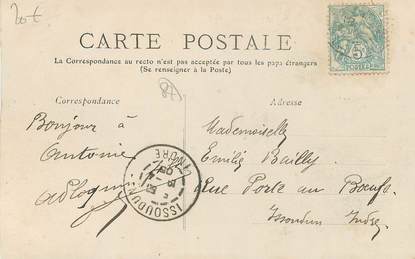 20 €
CARTE POSTALE
La Correspondance au recto n'est pas acceptée par tous les pays étrangers
(Se renseigner à la Poste)
Correspondance
Adresse
Bonjour à
Antoine
Mademoiselle
Emilie Bailly
Rue Porte au Bœufs
Issoudun Indre
ISSOUDUN
INDRE
5
POSTES